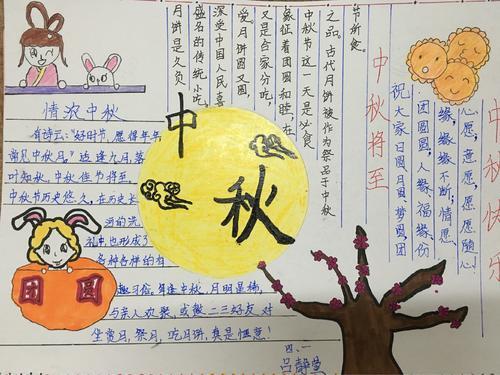 中秋
情浓中秋
有诗云:"好时节,愿得年年,
常见中秋月。"适逢九月,落
叶知秋,中秋佳节将至。
中秋节历史悠久,在历史长
河的洗
礼中也形成了
多种各样的有
趣习俗。每逢中秋,月明星稀,
与亲人欢聚,或邀二三好友,对
坐赏月,祭月,吃月饼,真是惬意!
团圆
月饼是久负
盛名的传统小吃,
深受中国人民喜
爱。月饼圆又圆,
又是合家分吃,
象征着团圆和睦,在
中秋节这一天是必食
之品。古代月饼被作为祭品于中秋
节所食。
中秋将至
祝大家日圆月圆,梦圆团
团圆圆;人缘福缘份
缘,缘缘不断;情愿
心愿,意愿,愿愿随心!
中秋快乐
四、一